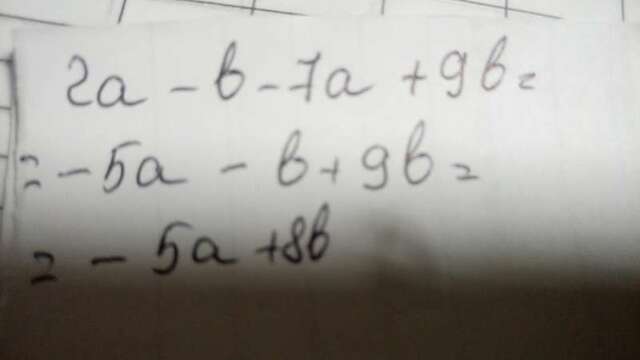 2a - b - 7a + 9b =
= -5a - b + 9b =
= -5a + 8b